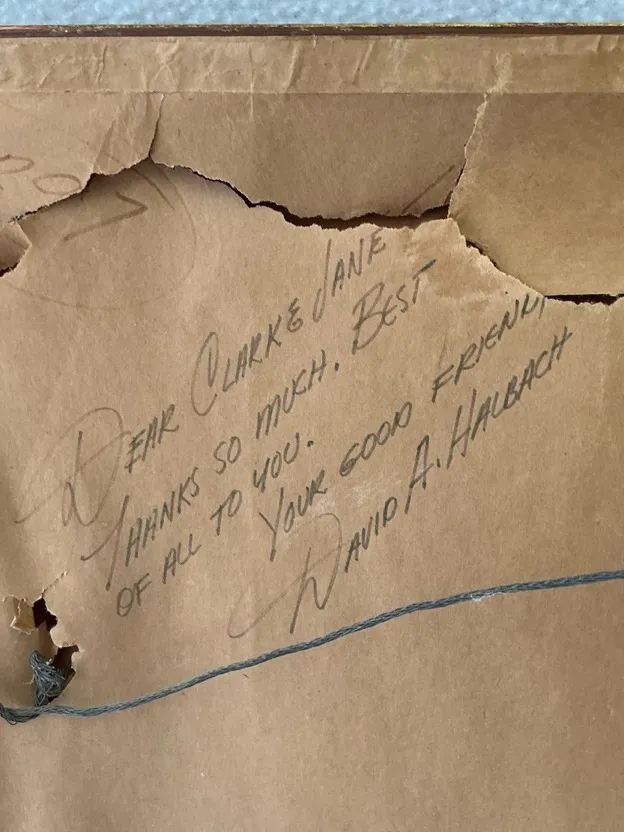 DEAR CLARK & JANE
THANKS SO MUCH. BEST
OF ALL TO YOU.
YOUR GOOD FRIEND,
DAVID A. HALBACH